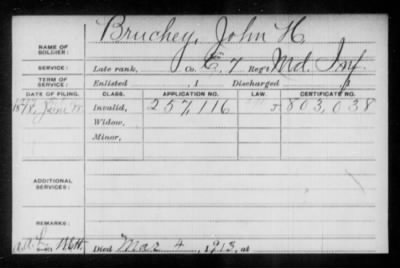 NAME OF SOLDIER: Bruchey, John H.
SERVICE: Late rank, Co. E, 7 Reg't Md. Inf.
TERM OF SERVICE: Enlisted , 1 Discharged
DATE OF FILING. CLASS. APPLICATION NO. LAW. CERTIFICATE NO.
1878, Invalid, 257,116 803,038
Widow,
Minor,
ADDITIONAL SERVICES:
REMARKS:
Died Mar 4, 1913, at